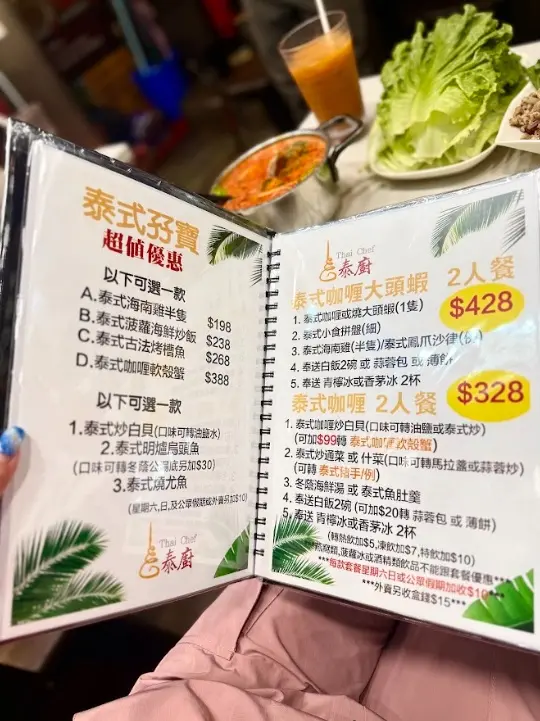 泰式孖寶
超值優惠
以下可選一款
A.泰式海南雞半隻 $198
B.泰式菠蘿海鮮炒飯 $238
C.泰式古法烤檔魚 $268
D.泰式咖喱軟殼蟹 $388
以下可選一款
1.泰式炒白貝(口味可轉油鹽水)
2.泰式明爐烏頭魚
(口味可轉冬蔭公湯底另加$30)
3.泰式燒尤魚
(星期六,日,及公眾假期或外賣另加$10)
Thai Chef
泰廚
Thai Chef
泰廚
泰式咖喱大頭蝦 2人餐
$428
1. 泰式咖喱或燒大頭蝦(1隻)
2. 泰式小食拼盤(細)
3. 泰式海南雞(半隻)/泰式鳳爪沙律
4. 奉送白飯2碗 或 蒜蓉包 或 薄餅
5. 奉送 青檸冰或香茅冰 2杯
泰式咖喱 2人餐
$328
1. 泰式咖喱炒白貝(口味可轉油鹽或泰式炒)
(可加$99轉 泰式咖喱軟殼蟹)
2. 泰式炒通菜 或 什菜(口味可轉馬拉盞或蒜蓉炒)
(可轉 泰式豬手/例)
3. 冬蔭海鮮湯 或 泰式魚肚羹
4. 奉送白飯2碗 (可加$20轉 蒜蓉包 或 薄餅)
5. 奉送 青檸冰或香茅冰 2杯
(轉熱飲加$5,凍飲加$7,特飲加$10)
菠蘿冰或酒精類飲品不能跟套餐優惠***
***每款套餐星期六日或公眾假期加收$10***
***外賣另收盒錢$15***